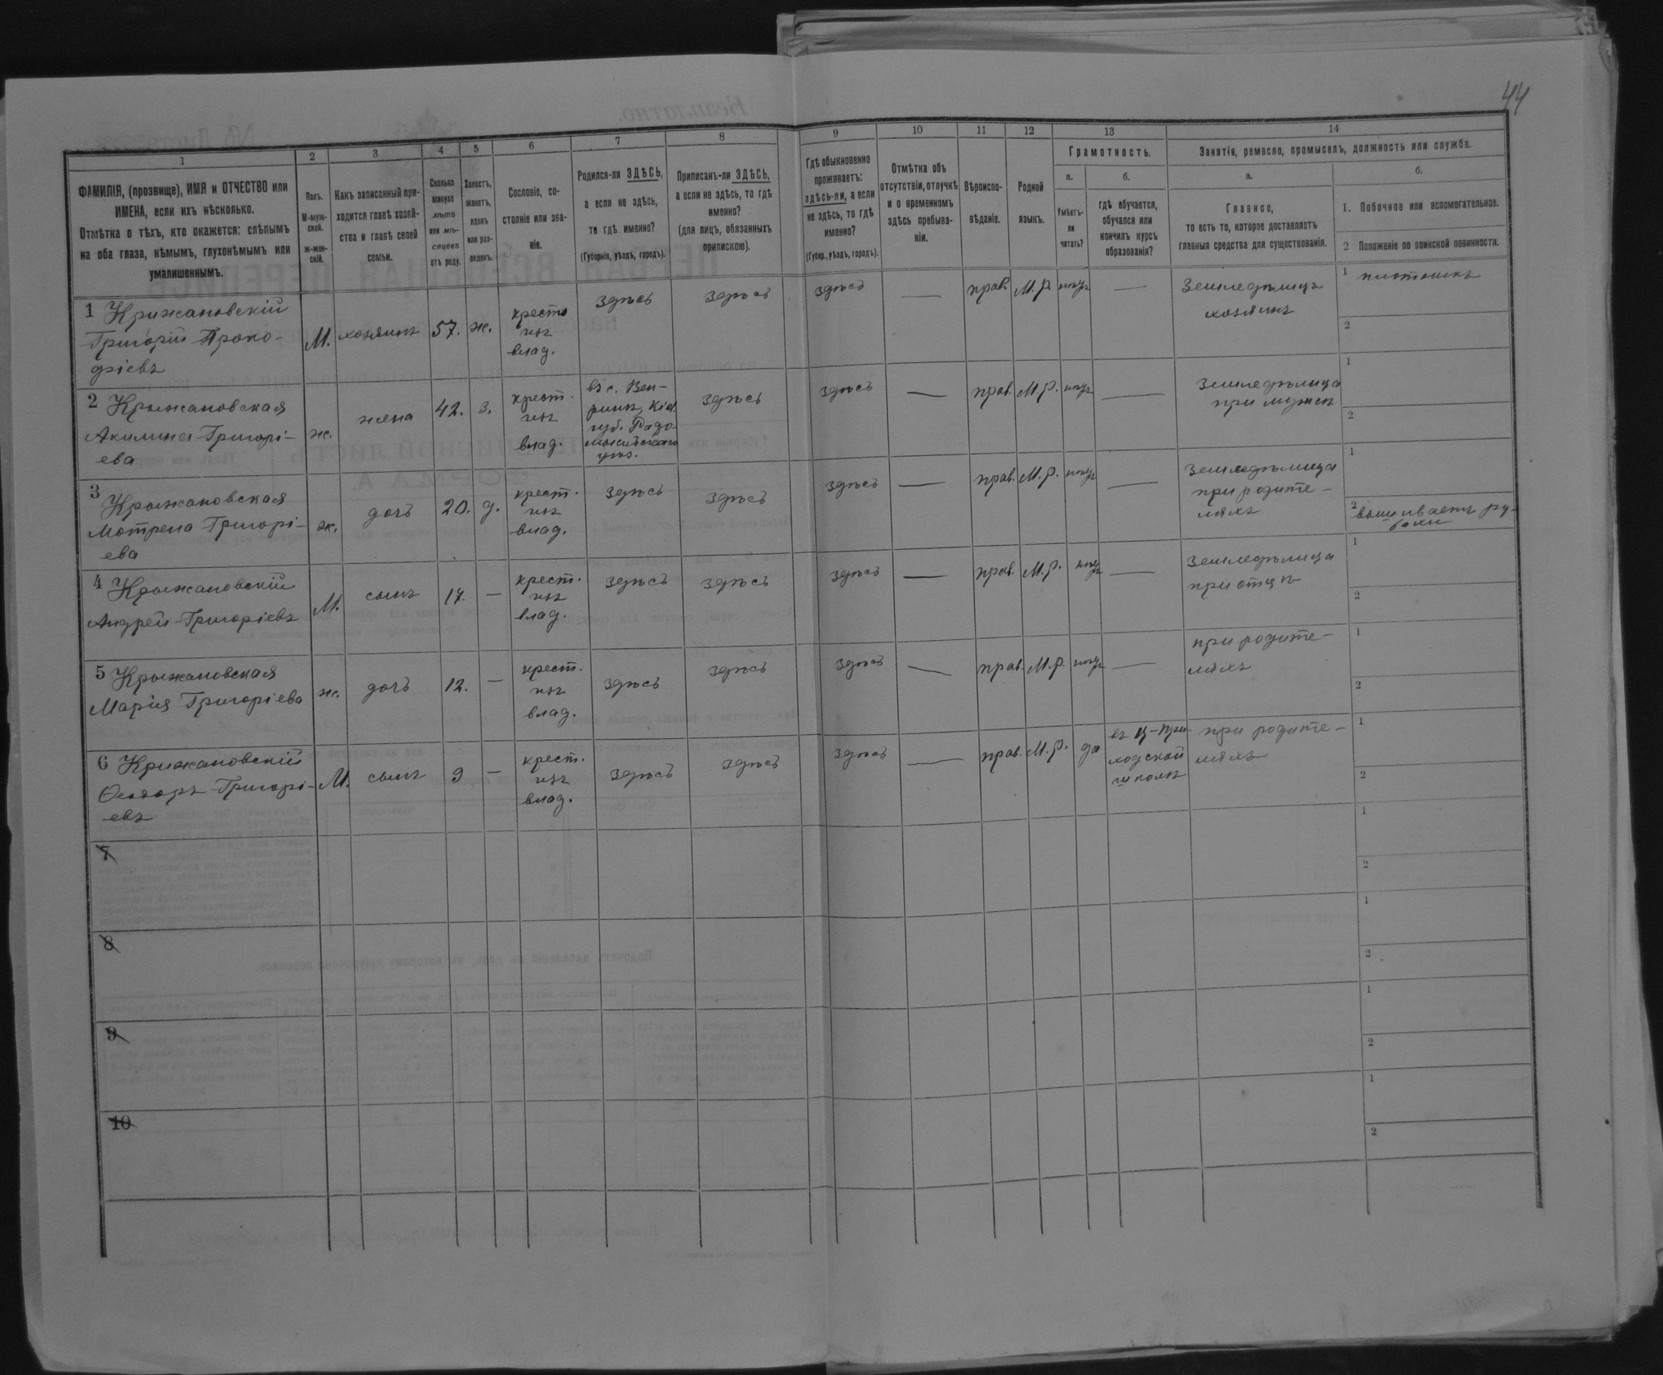 44
1 2 3 4 5 6 7 8 9 10 11 12 13 14
ФАМИЛІЯ, (прозвище), ИМЯ и ОТЧЕСТВО или
ИМЕНА, если ихъ нѣсколько.
Отмѣтка о тѣхъ, кто окажется: слѣпымъ
на оба глаза, нѣмымъ, глухонѣмымъ или
умалишеннымъ.
Полъ.
М-муж-
ской.
Ж-жен-
скій.
Какъ записанный при-
ходится главѣ хозяй-
ства и главѣ своей
семьи.
Сколько
минуло
лѣтъ
или мѣ-
сяцевъ
отъ роду.
Холостъ,
женатъ,
вдовъ
или раз-
веденъ.
Сословіе, со-
стояніе или зва-
ніе.
Родился-ли ЗДѢСЬ,
а если не здѣсь,
то гдѣ именно?
(Губернія, уѣздъ, городъ).
Приписанъ-ли ЗДѢСЬ,
а если не здѣсь, то гдѣ
именно?
(для лицъ, обязанныхъ
припискою).
Гдѣ обыкновенно
проживаетъ:
здѣсь-ли, а если
не здѣсь, то гдѣ
именно?
(Губер., уѣздъ, городъ).
Отмѣтка объ
отсутствіи, отлучкѣ
и о временномъ
здѣсь пребыва-
ніи.
Вѣроиспо-
вѣданіе.
Родной
языкъ.
Грамотность.
а.
Умѣетъ-
ли
читать?
б.
Гдѣ обучается,
обучался или
кончилъ курсъ
образованія?
Занятія, ремесло, промыселъ, должность или служба.
а.
Главное,
то есть то, которое доставляетъ
главныя средства для существованія.
б.
1. Побочное или вспомогательное.
2 Положеніе по воинской повинности.
1 Крижановскій
Григорій Проко-
фіевъ
М. хозяинъ 57. ж.
крестъ
изъ
влад.
здѣсь здѣсь здѣсь — прав. М.р. —
Земледѣлецъ
хозяинъ
1
2
2 Крыжановская
Акилина Григорі-
ева
ж. жена 42. з.
крест.
изъ
влад.
въ с. Веп-
ринъ, Кіев.
губ. Радо-
мысльскаго
уѣз.
здѣсь здѣсь — прав. М.р. —
земледѣлица
при мужѣ
1
2
3 Крыжановская
Мотрена Григорі-
ева
ж. дочь 20. д.
крест.
изъ
влад.
здѣсь здѣсь здѣсь — прав. М.р. —
земледѣлица
при родите-
ляхъ
1
2 вышиваетъ ру-
бахи
4 Крыжановскій
Андрей Григоріевъ
М. сынъ 17. —
крест.
изъ
влад.
здѣсь здѣсь здѣсь — прав. М.р. —
земледѣлица
при отцѣ
1
2
5 Крыжановская
Марія Григоріева
ж. дочь 12. —
крест.
изъ
влад.
здѣсь здѣсь здѣсь — прав. М.р. —
при родите-
ляхъ
1
2
6 Крижановскій
Ѳеодоръ Григорі-
евъ
М. сынъ 9 —
крест.
изъ
влад.
здѣсь здѣсь здѣсь — прав. М.р. да
въ Ц-При-
ходской
школѣ
при родите-
ляхъ
1
2
7
1
2
8
1
2
9
1
2
10
1
2